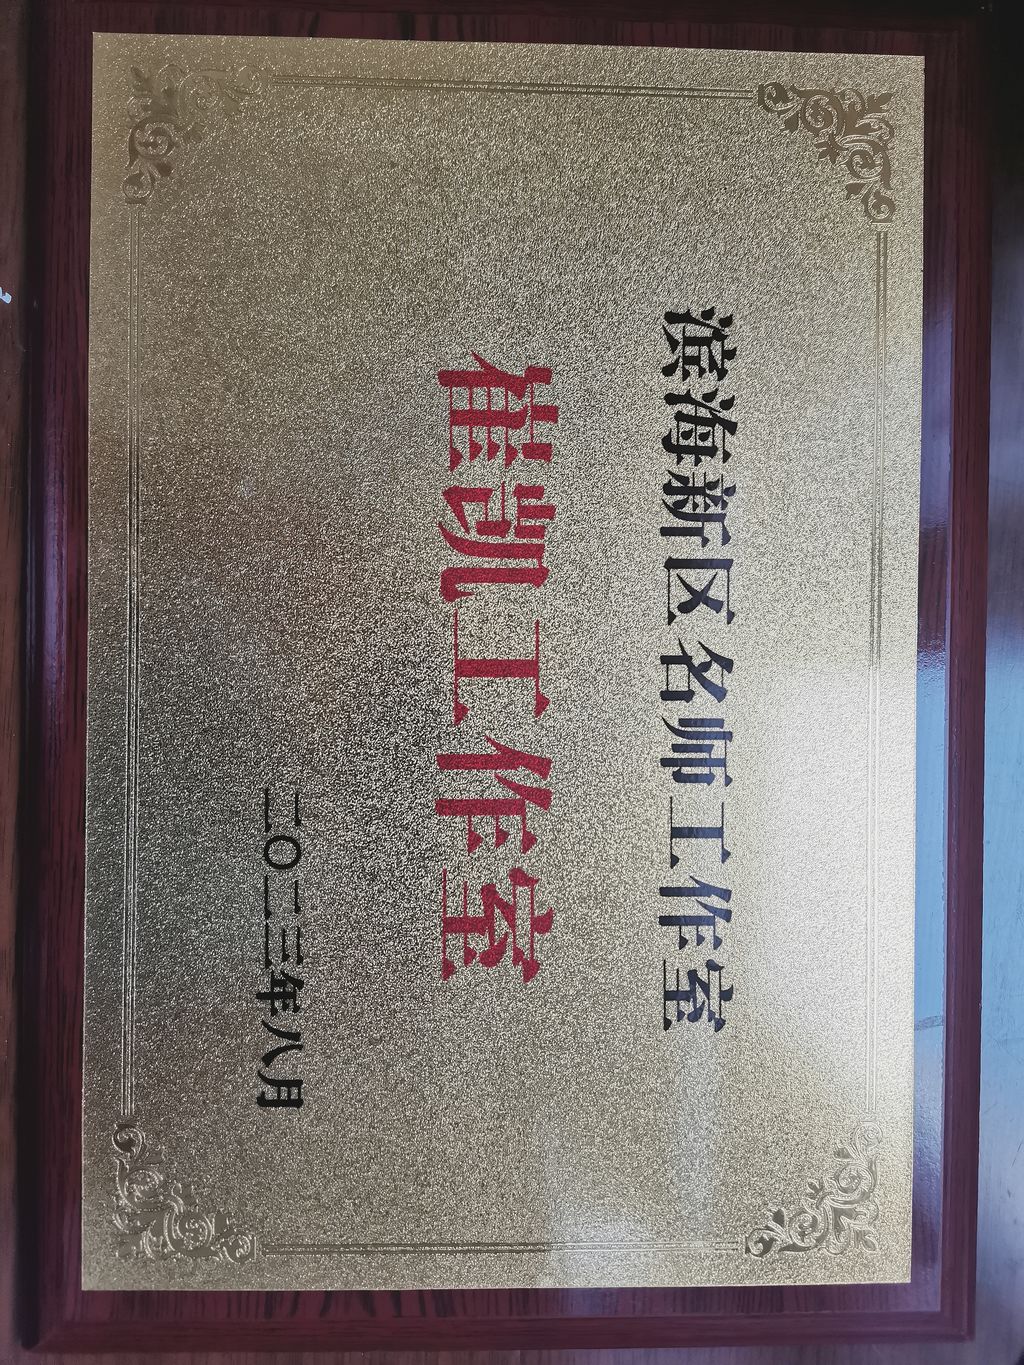 滨海新区名师工作室
崔凯工作室
二〇二三年八月